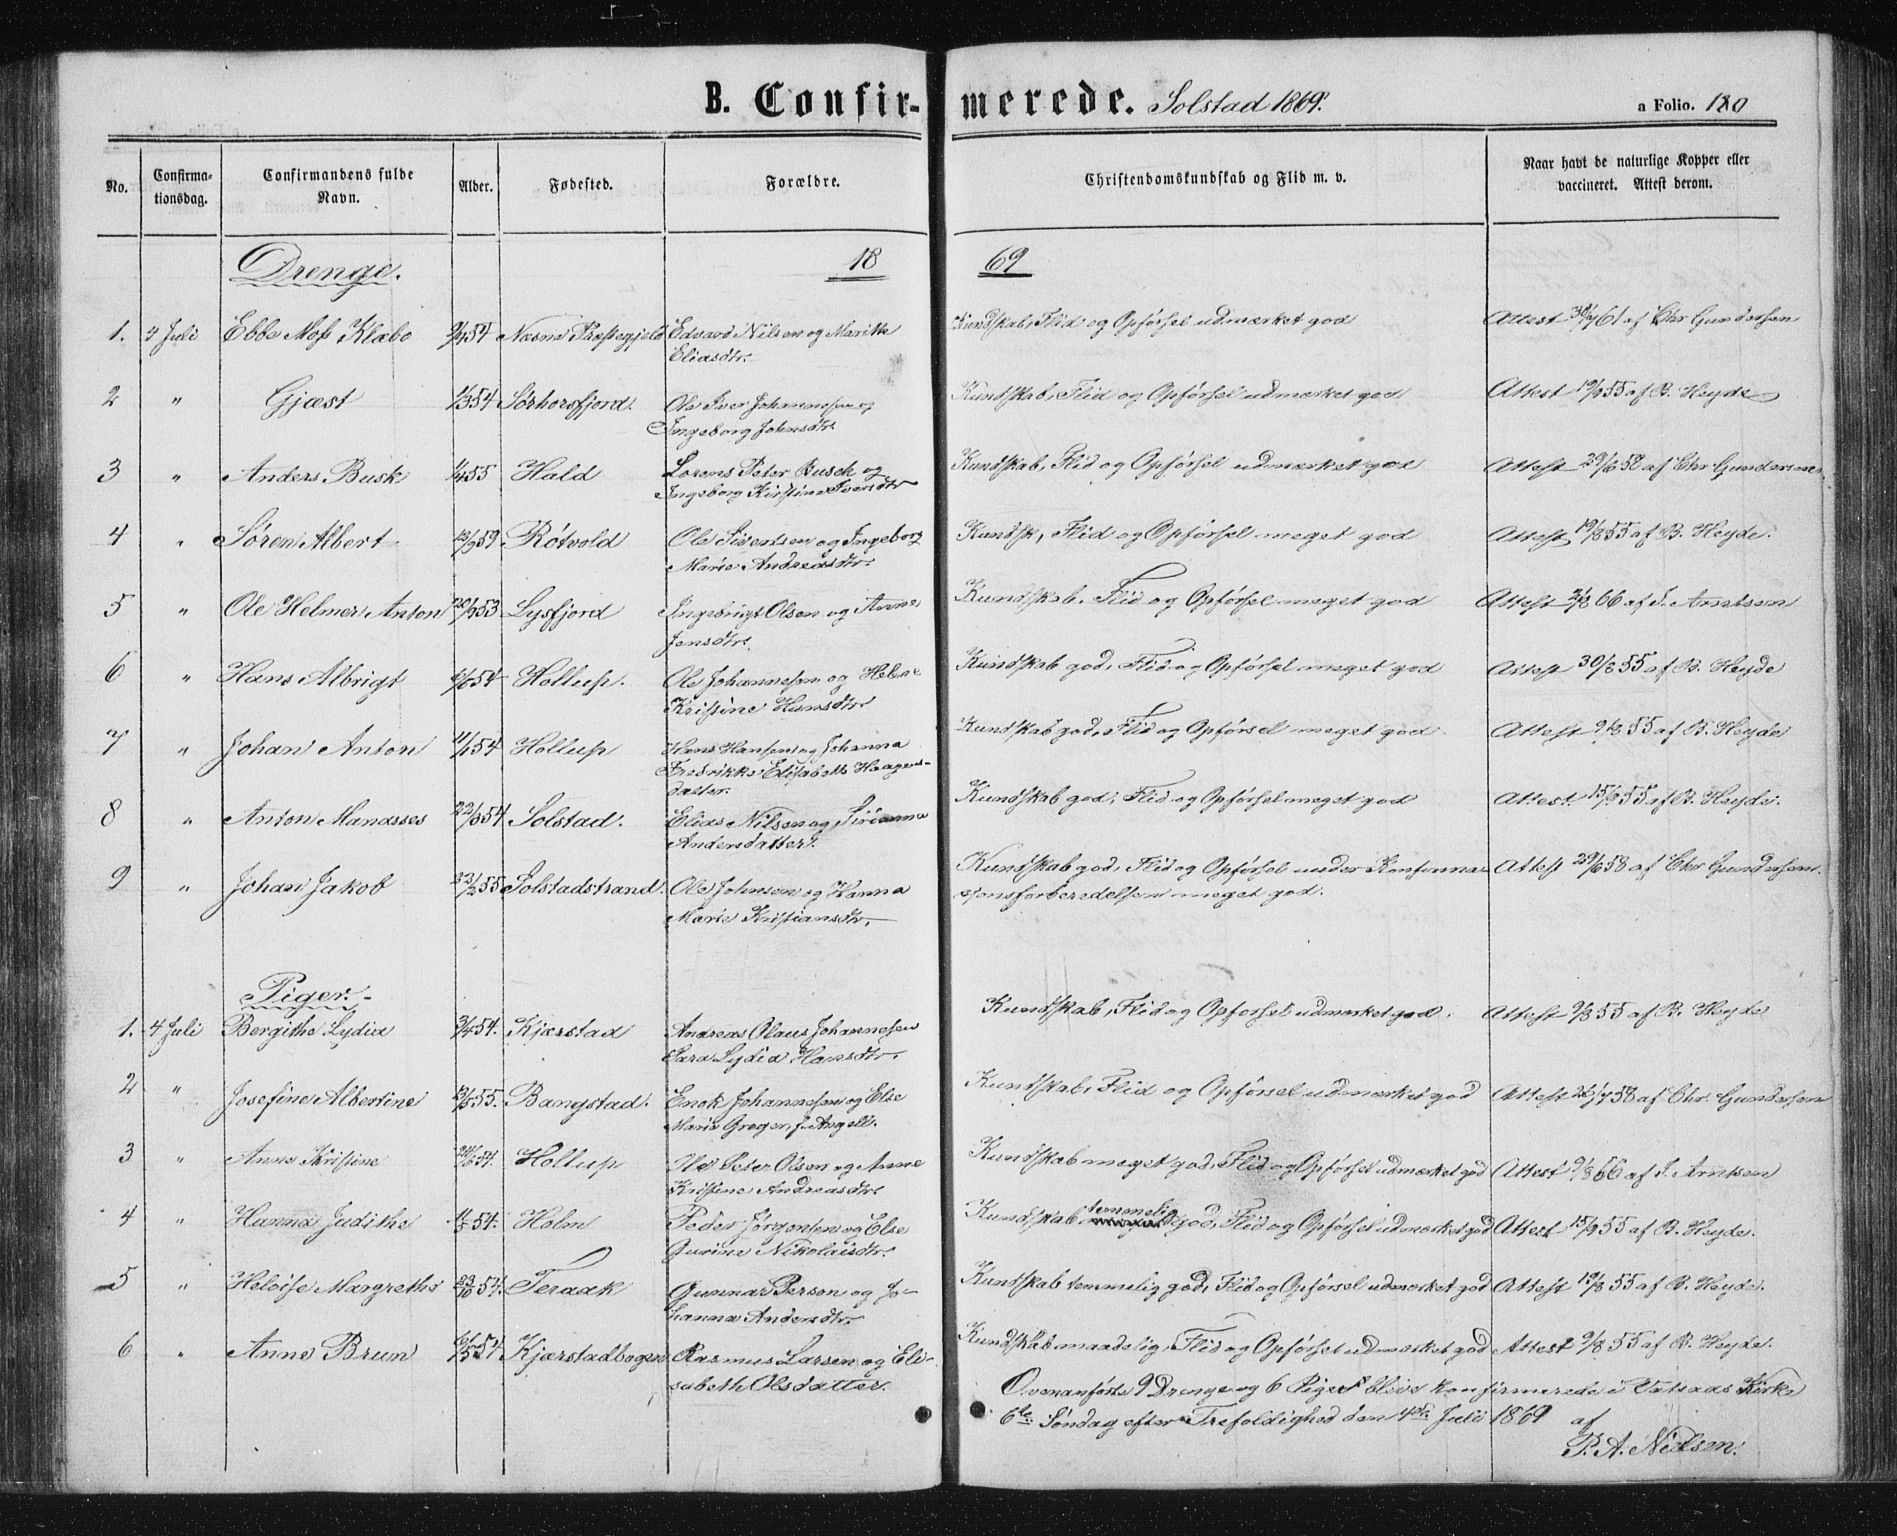 B. Confirmerede. Solstad 1869. a Folio. 180
No. Confirmationsdag. Confirmandens fulde Navn. Alder. Fødested. Forældre. Christendomskundskab og Flid m. v. Naar havt de naturlige Kopper eller vaccineret. Attest derom.
Drenge. 18 69
1. 4 Juli Ebbe Moss Klæbo 54 Næsne Præstegjeld Edvard Nilsen og Marith Kundskab, Flid og Opførsel udmærket god Attest 61 af Chr Gundersen
Eliasdtr.
2 " Gjæst 54 Sørhorsfjord. Ole Iver Johannesen og Kundskab, Flid og Opførsel udmærket god Attest 19/9 55 af B. Heyde
Ingeborg Johnsdtr.
3 " Anders Busk 1/4 55 Hald Lorens Peter Busch og Kundskab, Flid og Opførsel udmærket god Attest 29/6 58 af Chr Gundersen
Ingeborg Kirstine Iversdtr
4 " Søren Albert Røtvold Ole Sivertsen og Ingeborg Kundsk, Flid og Opførsel meget god Attest 19/8 55 af B. Heyde.
Marie Andreasdtr.
5 " Ole Helmer Anton 20/9 53 Lysfjord Ingebrigt Olsen og Anne Kundskab, Flid og Opførsel meget god Attest 66 af J. Arntsen
Jensdtr.
6 " Hans Albrigt 54 Hollup. Ole Johannesen og Helene Kundskab god, Flid og Opførsel meget god Attest 30/8 55 af B. Heyde
Kristine Hansdtr.
7 " Johan Anton 54 Hollup Hans Hansen og Johanna Kundskab god, Flid og Opførsel meget god Attest 9/8 55 af B. Heyde
Fredrikke Elisabeth Haagens-
datter.
8 " Anton Manasses 22/9 54 Solstad. Elias Nilsen og Sirianna Kundskab god, Flid og Opførsel meget god Attest 15/9 55 af B. Heyde.
Andersdatter.
9 " Johan Jakob 55 Solstadstrand. Ole Johnsen og Hanna Kundskab god, Flid og Opførsel under Konfirma- Attest 29/6 58 af Chr Gundersen.
Marie Kristiansdtr. tjonsforberedelsen meget god.
Piger.
1. 4 Juli Bergithe Lydia 54. Kjærstad Andreas Olaus Johannesen Kundskab, Flid og Opførsel udmærket god. Attest 9/8 55 af B. Heyde
Sara Lydia Hansdtr.
2 " Josefine Albertine 55. Bangstad. Enok Johannesen og Else Kundskab, Flid og Opførsel udmærket god Attest 26/7 58 af Chr. Gundersen
Marie Greger, f. Angell.
3 " Anne Kristine 54. Hollup Ole Peter Olsen og Anne Kundskab meget god, Flid og Opførsel udmærket god Attest 9/8 66 af J. Arntsen
Kristine Andreasdtr.
4 " Hanna Judithe 54. Holm Peder Jørgensen og Else Kundskab temmelig god, Flid og Opførsel udmærket god Attest 15/9 55 af B. Heyde.
Gurine Nikolaisdtr.
5 " Heloise Margrethe 23/10 54. Teraak Gunnar Person og Jo- Kundskab temmelig god, Flid og Opførsel udmærket god Attest 19/8 55 af B. Heyde.
hanna Andersdtr.
6 " Anne Brun 54 Kjærstadbogen Rasmus Larsen og Eli- Kundskab maadelig, Flid og Opførsel udmærket god Attest 9/8 55 af B. Heyde.
sabeth Olsdatter.
Ovenanførte 9 Drenge og 6 Piger bleve konfirmerede i Vatsaas Kirke
6te Søndag efter Trefoldighed den 4de Juli 1869 af
P. A. Nielsen.